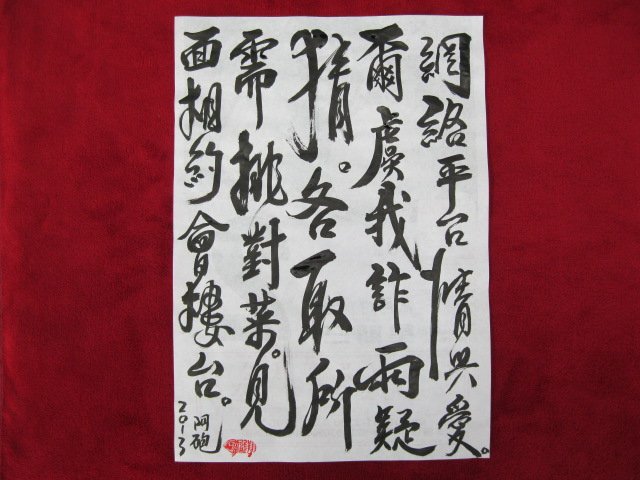 網絡平台情與愛。
爾虞我詐兩疑
猜。各取所
需挑對菜。見
面相約會樓台。
2013
阿砲